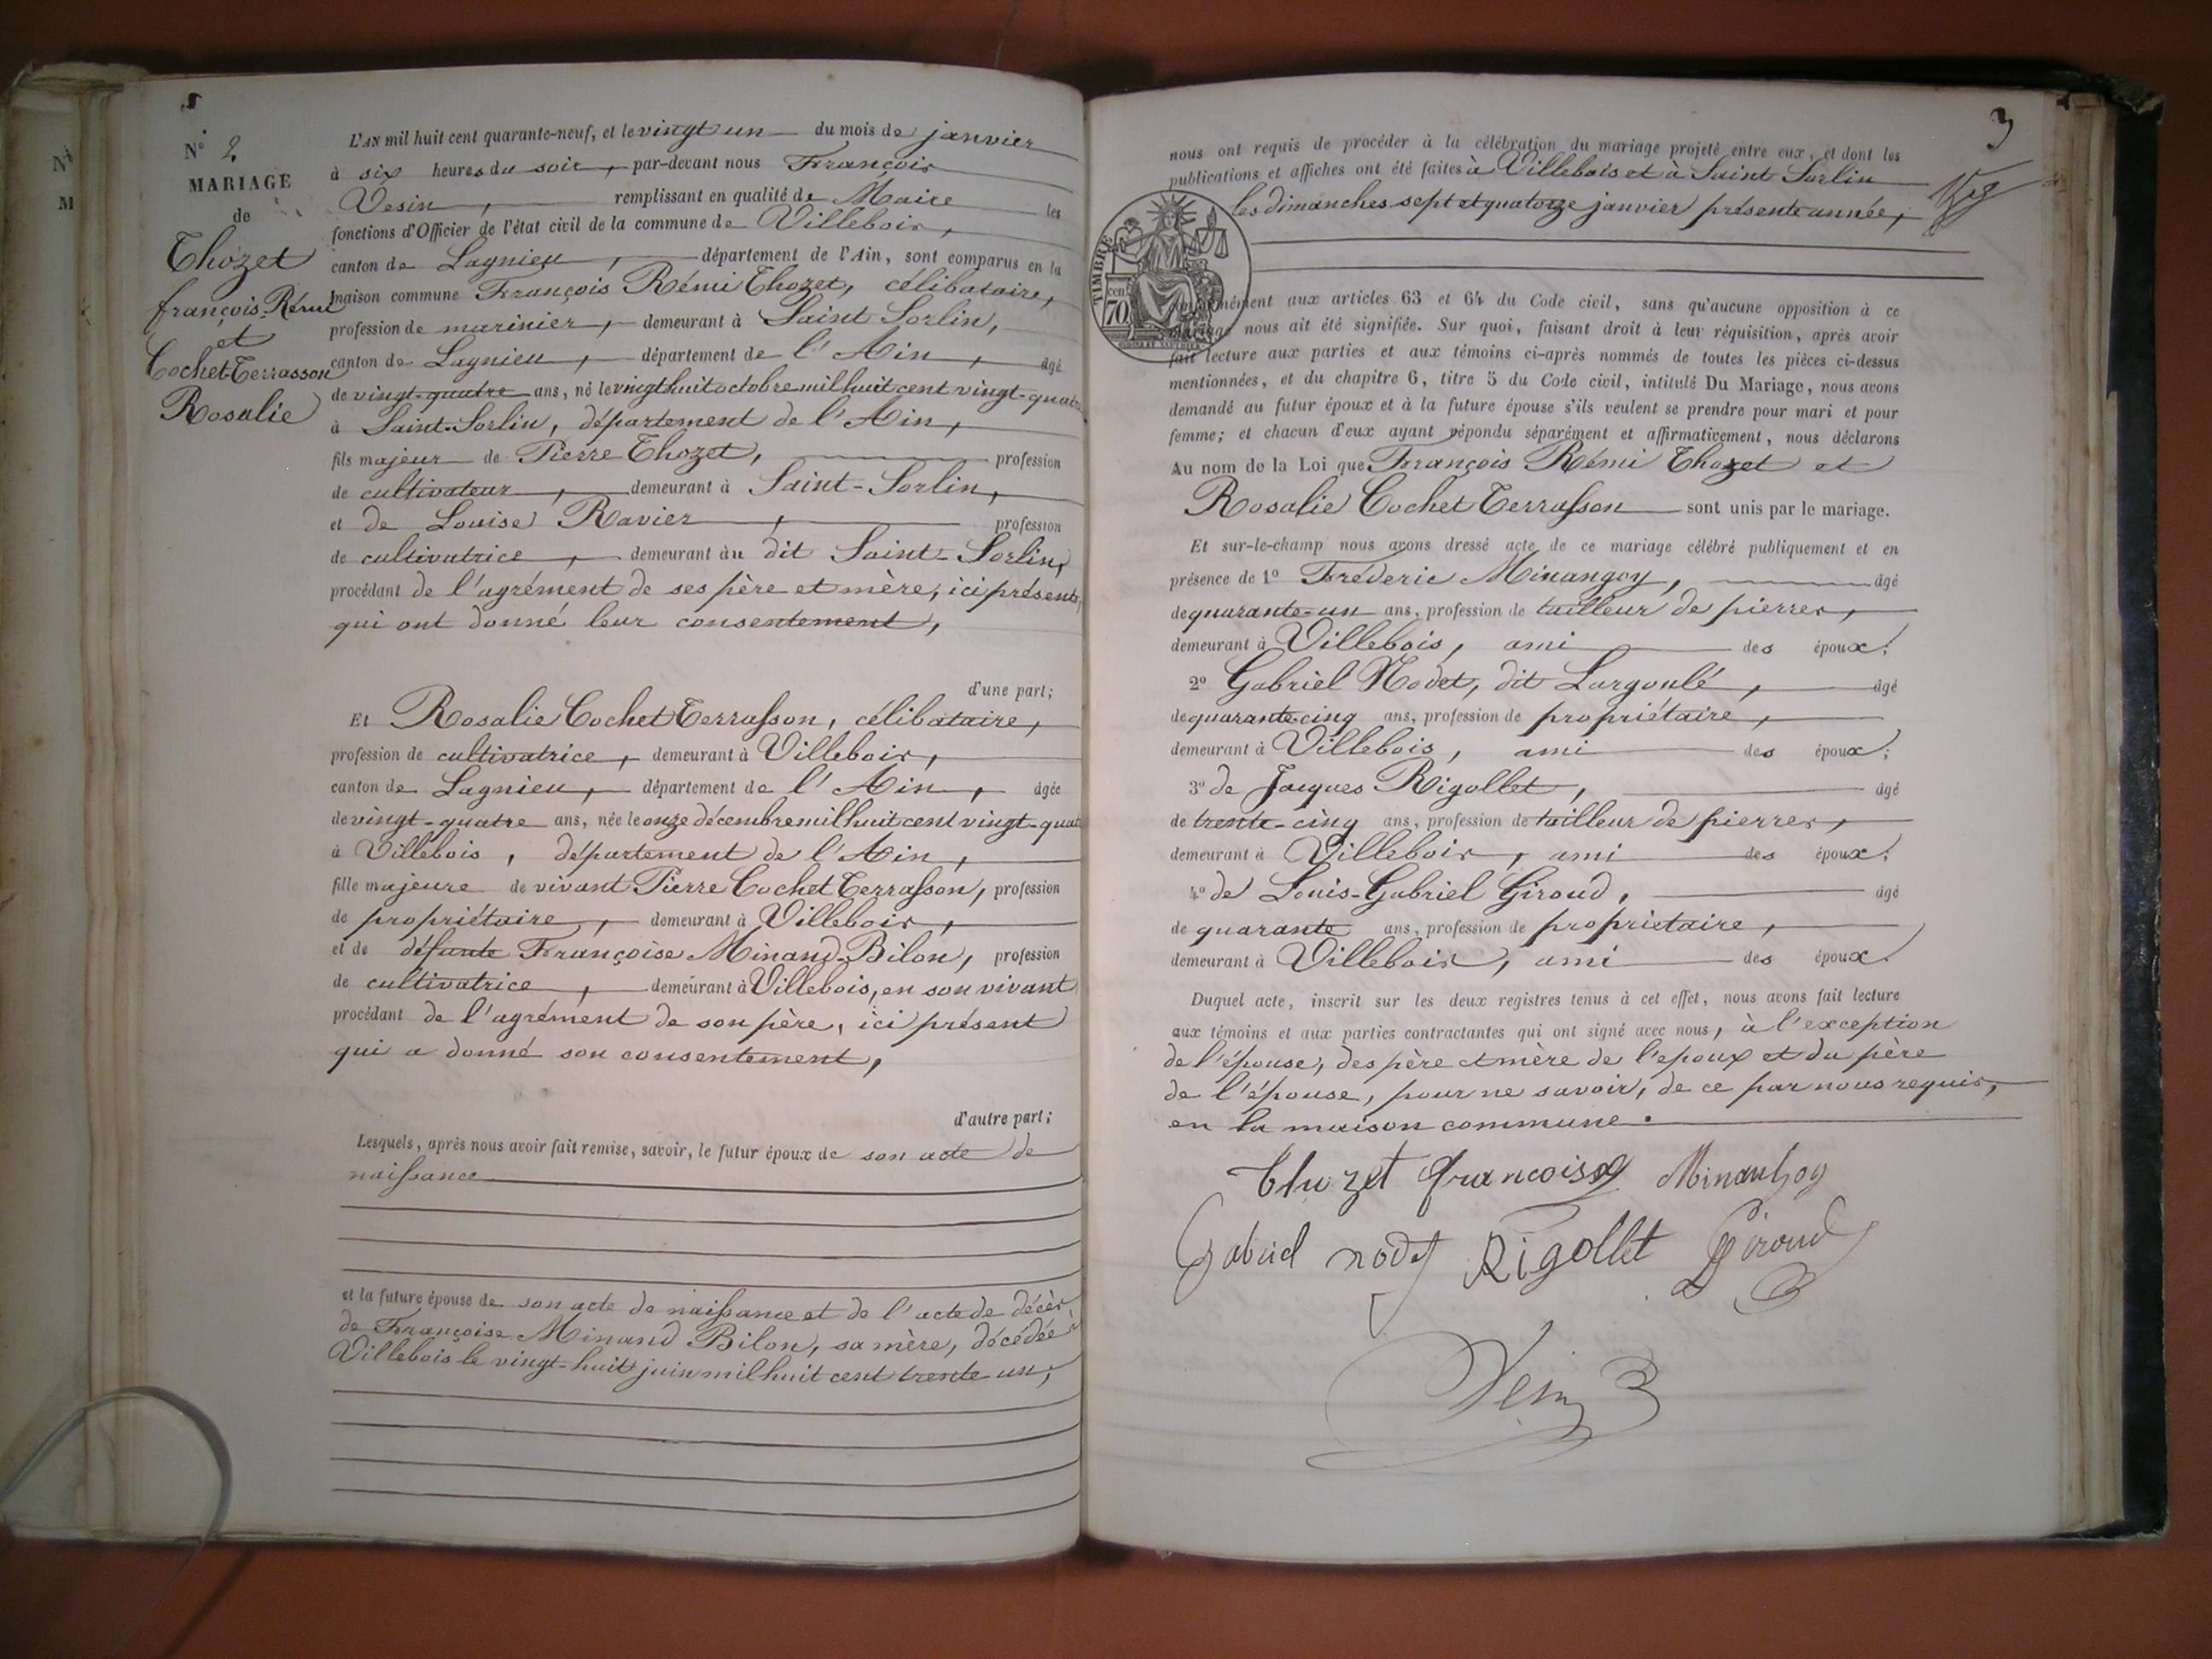 N° 2
MARIAGE
de
Thozet
françois-Rémi
et
Cochet-Terrasson
Rosalie
L'AN mil huit cent quarante-neuf, et le vingt un du mois de janvier
à six heures du soir, par-devant nous François
Vesin, remplissant en qualité de Maire les
fonctions d'Officier de l'état civil de la commune de Villebois,
canton de Lagnieu, département de l'Ain, sont comparus en la
maison commune François Rémi Thozet, célibataire,
profession de marinier, demeurant à Saint Sorlin,
canton de Lagnieu, département de l'Ain, âgé
de vingt-quatre ans, né le vingt huit octobre mil huit cent vingt-quatre
à Saint-Sorlin, département de l'Ain,
fils majeur de Pierre Thozet, profession
de cultivateur, demeurant à Saint-Sorlin,
et de Louise Ravier, profession
de cultivatrice, demeurant au dit Saint-Sorlin,
procédant de l'agrément de ses père et mère, ici présents,
qui ont donné leur consentement,
d'une part;
Et Rosalie Cochet Terrasson, célibataire,
profession de cultivatrice, demeurant à Villebois,
canton de Lagnieu, département de l'Ain, âgée
de vingt-quatre ans, née le onze décembre mil huit cent vingt-quatre
à Villebois, département de l'Ain,
fille majeure de vivant Pierre Cochet Terrasson, profession
de propriétaire, demeurant à Villebois,
et de défunte Françoise Minand-Bilon, profession
de cultivatrice, demeurant à Villebois, en son vivant
procédant de l'agrément de son père, ici présent
qui a donné son consentement,
d'autre part;
Lesquels, après nous avoir fait remise, savoir, le futur époux de son acte de
naissance
et la future épouse de son acte de naissance et de l'acte de décès,
de Françoise Minand Bilon, sa mère, décédée à
Villebois le vingt-huit juin mil huit cent trente un,
3
nous ont requis de procéder à la célébration du mariage projeté entre eux, et dont les
publications et affiches ont été faites à Villebois et à Saint Sorlin
les dimanches sept et quatorze janvier présente année,
TIMBRE
70 cen.
conformément aux articles 63 et 64 du Code civil, sans qu'aucune opposition à ce
mariage nous ait été signifiée. Sur quoi, faisant droit à leur réquisition, après avoir
fait lecture aux parties et aux témoins ci-après nommés de toutes les pièces ci-dessus
mentionnées, et du chapitre 6, titre 5 du Code civil, intitulé Du Mariage, nous avons
demandé au futur époux et à la future épouse s'ils veulent se prendre pour mari et pour
femme; et chacun d'eux ayant répondu séparément et affirmativement, nous déclarons
Au nom de la Loi que François Rémi Thozet et
Rosalie Cochet Terrasson sont unis par le mariage.
Et sur-le-champ nous avons dressé acte de ce mariage célébré publiquement et en
présence de 1° Fréderic Minangoy, âgé
de quarante-un ans, profession de tailleur de pierres,
demeurant à Villebois, ami des époux;
2° Gabriel Nodet, dit Largoulé, âgé
de quarante cinq ans, profession de propriétaire,
demeurant à Villebois, ami des époux;
3° de Jacques Rigollet, âgé
de trente-cinq ans, profession de tailleur de pierres,
demeurant à Villebois, ami des époux;
4° de Louis-Gabriel Giroud, âgé
de quarante ans, profession de propriétaire,
demeurant à Villebois, ami des époux.
Duquel acte, inscrit sur les deux registres tenus à cet effet, nous avons fait lecture
aux témoins et aux parties contractantes qui ont signé avec nous, à l'exception
de l'épouse, des père et mère de l'epoux et du père
de l'épouse, pour ne savoir, de ce par nous requis,
en la maison commune.
Thozet francois Minangoy
Gabriel nodet Rigollet Giroud
Vesin